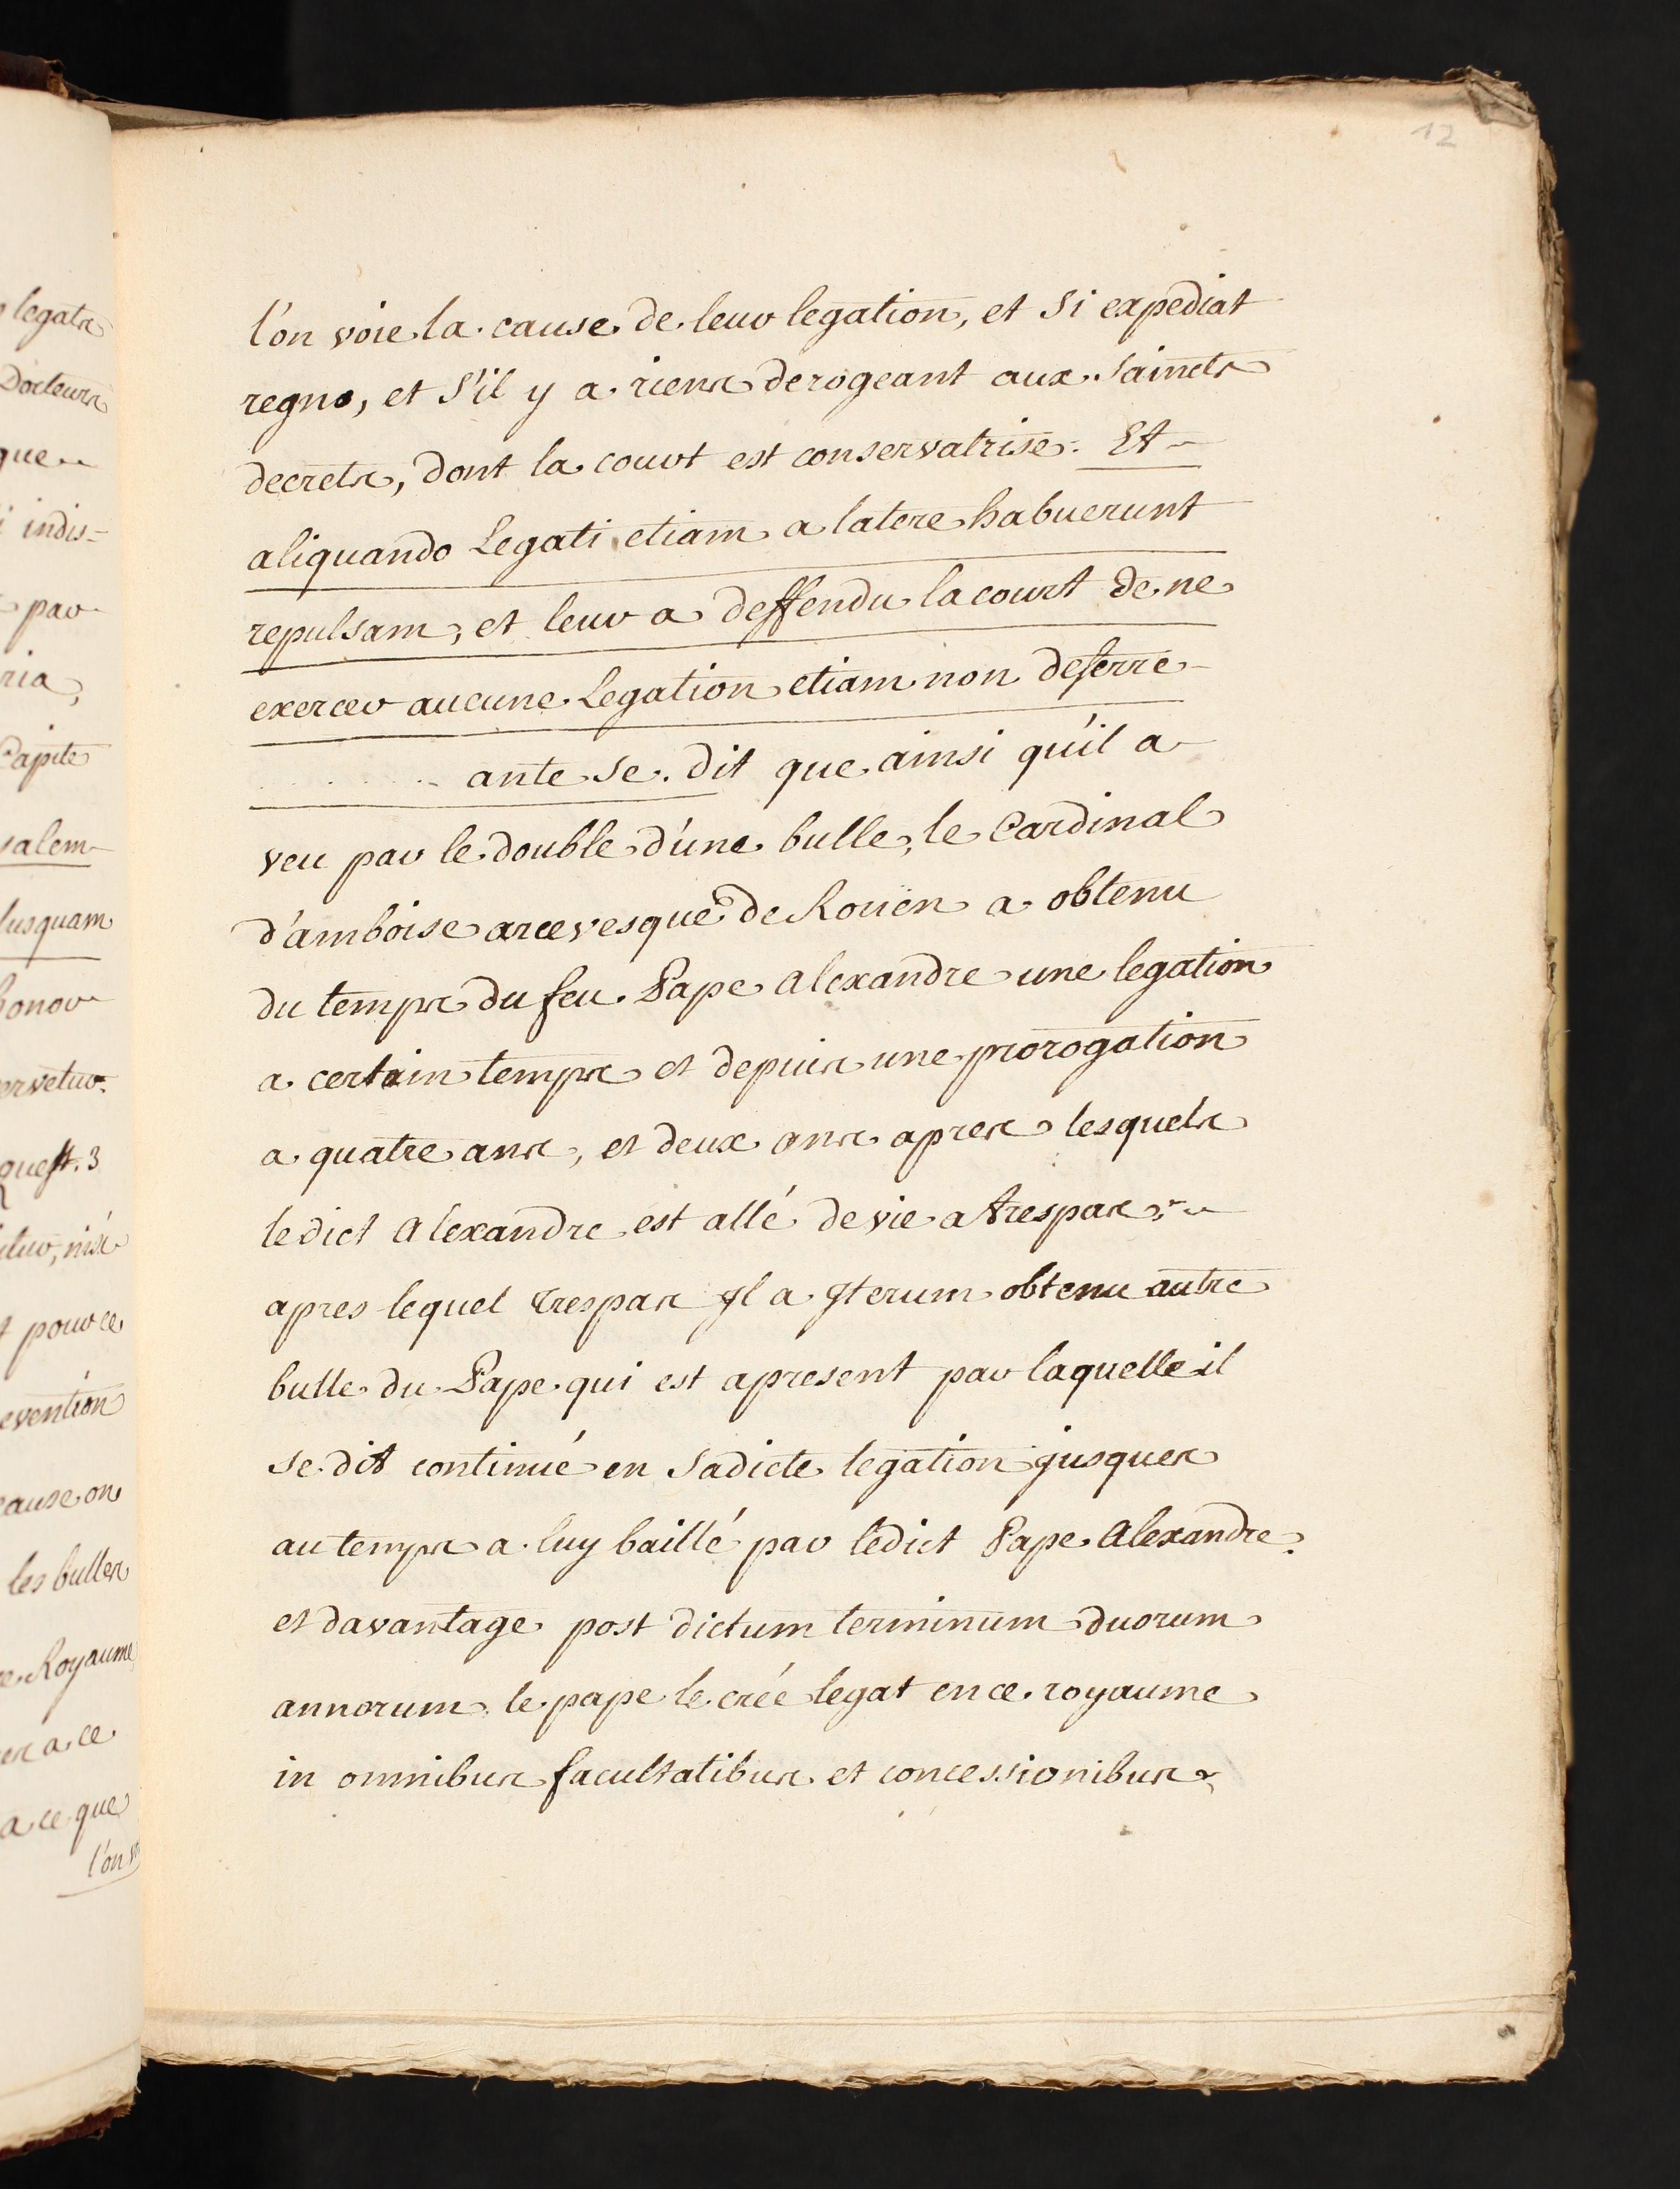 12
l'on voie la cause de leur legation, et si expediat
regno, et s'il y a riens derogeant aux saincts
decrets, dont la court est conservatrise. Et
aliquando Legati etiam a latere habuerunt
repulsam, et leur a deffendu la court de ne
exercer aucune Legation etiam non deferre
. . . . . . . ante se. dit que ainsi qu'il a
veu par le double d'une bulle, le Cardinal
d'amboise arcevesque de Roüen a obtenu
du temps du feu Pape Alexandre une legation
a certain temps et depuis une prorogation
a quatre ans, et deux ans apres lesquels
ledict Alexandre est allé de vie a trespas,
apres lequel trespas Jl a Jterum obtenu autre
bulle du Pape qui est apresent par laquelle il
se dit continué en sadicte legation jusques
au temps a luy baillé par ledict Pape Alexandre.
et davantage post dictum terminum duorum
annorum le pape le creé legat en ce royaume
in omnibus facultatibus et concessionibus
legats
Docteurs
que
indis=
par
ria,
Capite
salem
lusquam
honor
ervetur.
quest. 3
itur, nisi
pour ce
evention
cause on
les bulles
Royaume
a ce
a ce que
l'on v